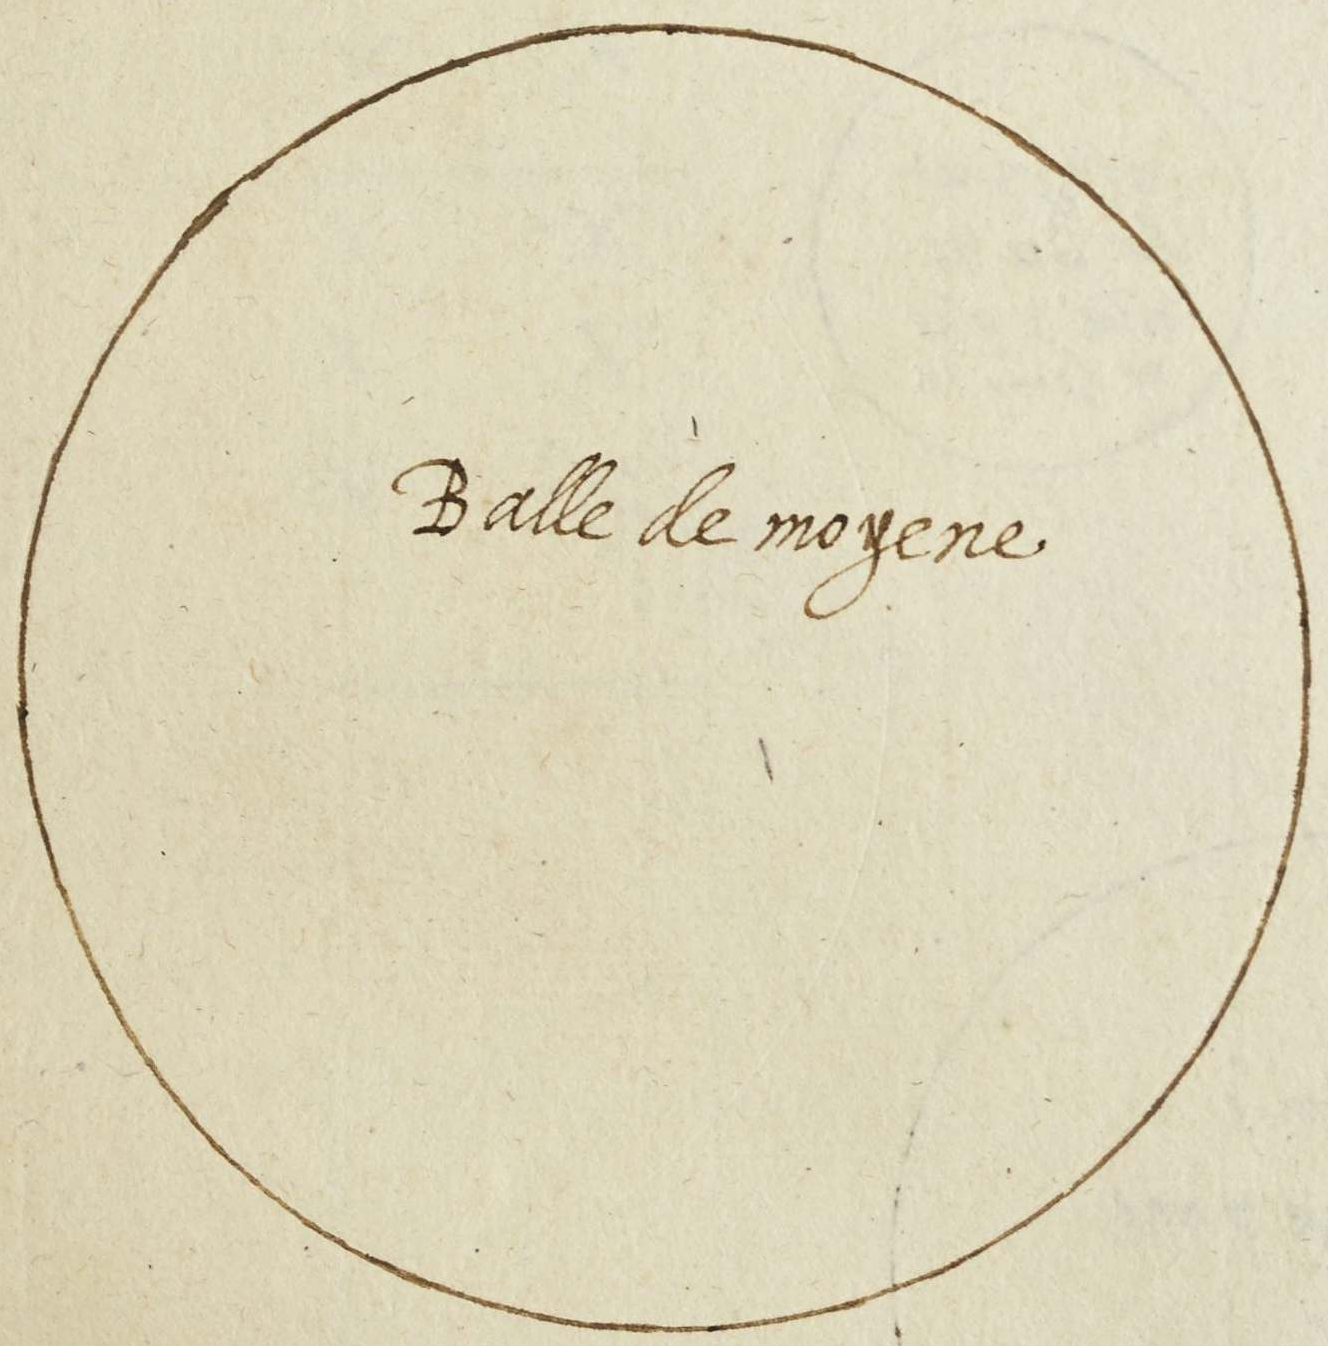 Balle de moyene